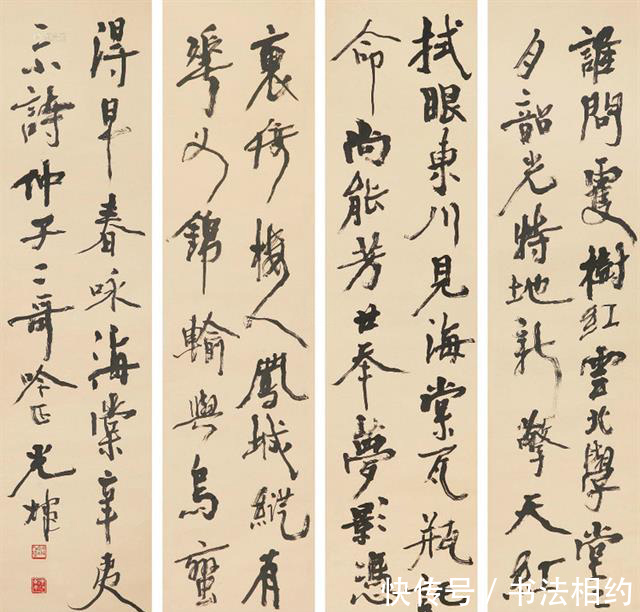 誰問雙樹紅雲北學堂
夕韶光特地新擎天紅
拭眼東川見海棠瓦瓶
命尚能芳廿年夢影憑
裏倚樓人鳳城縱有
華如錦輸與烏蠻
得早春咏海棠辛夷
示詩仲子二哥吟正光煒
快传号/书法相约